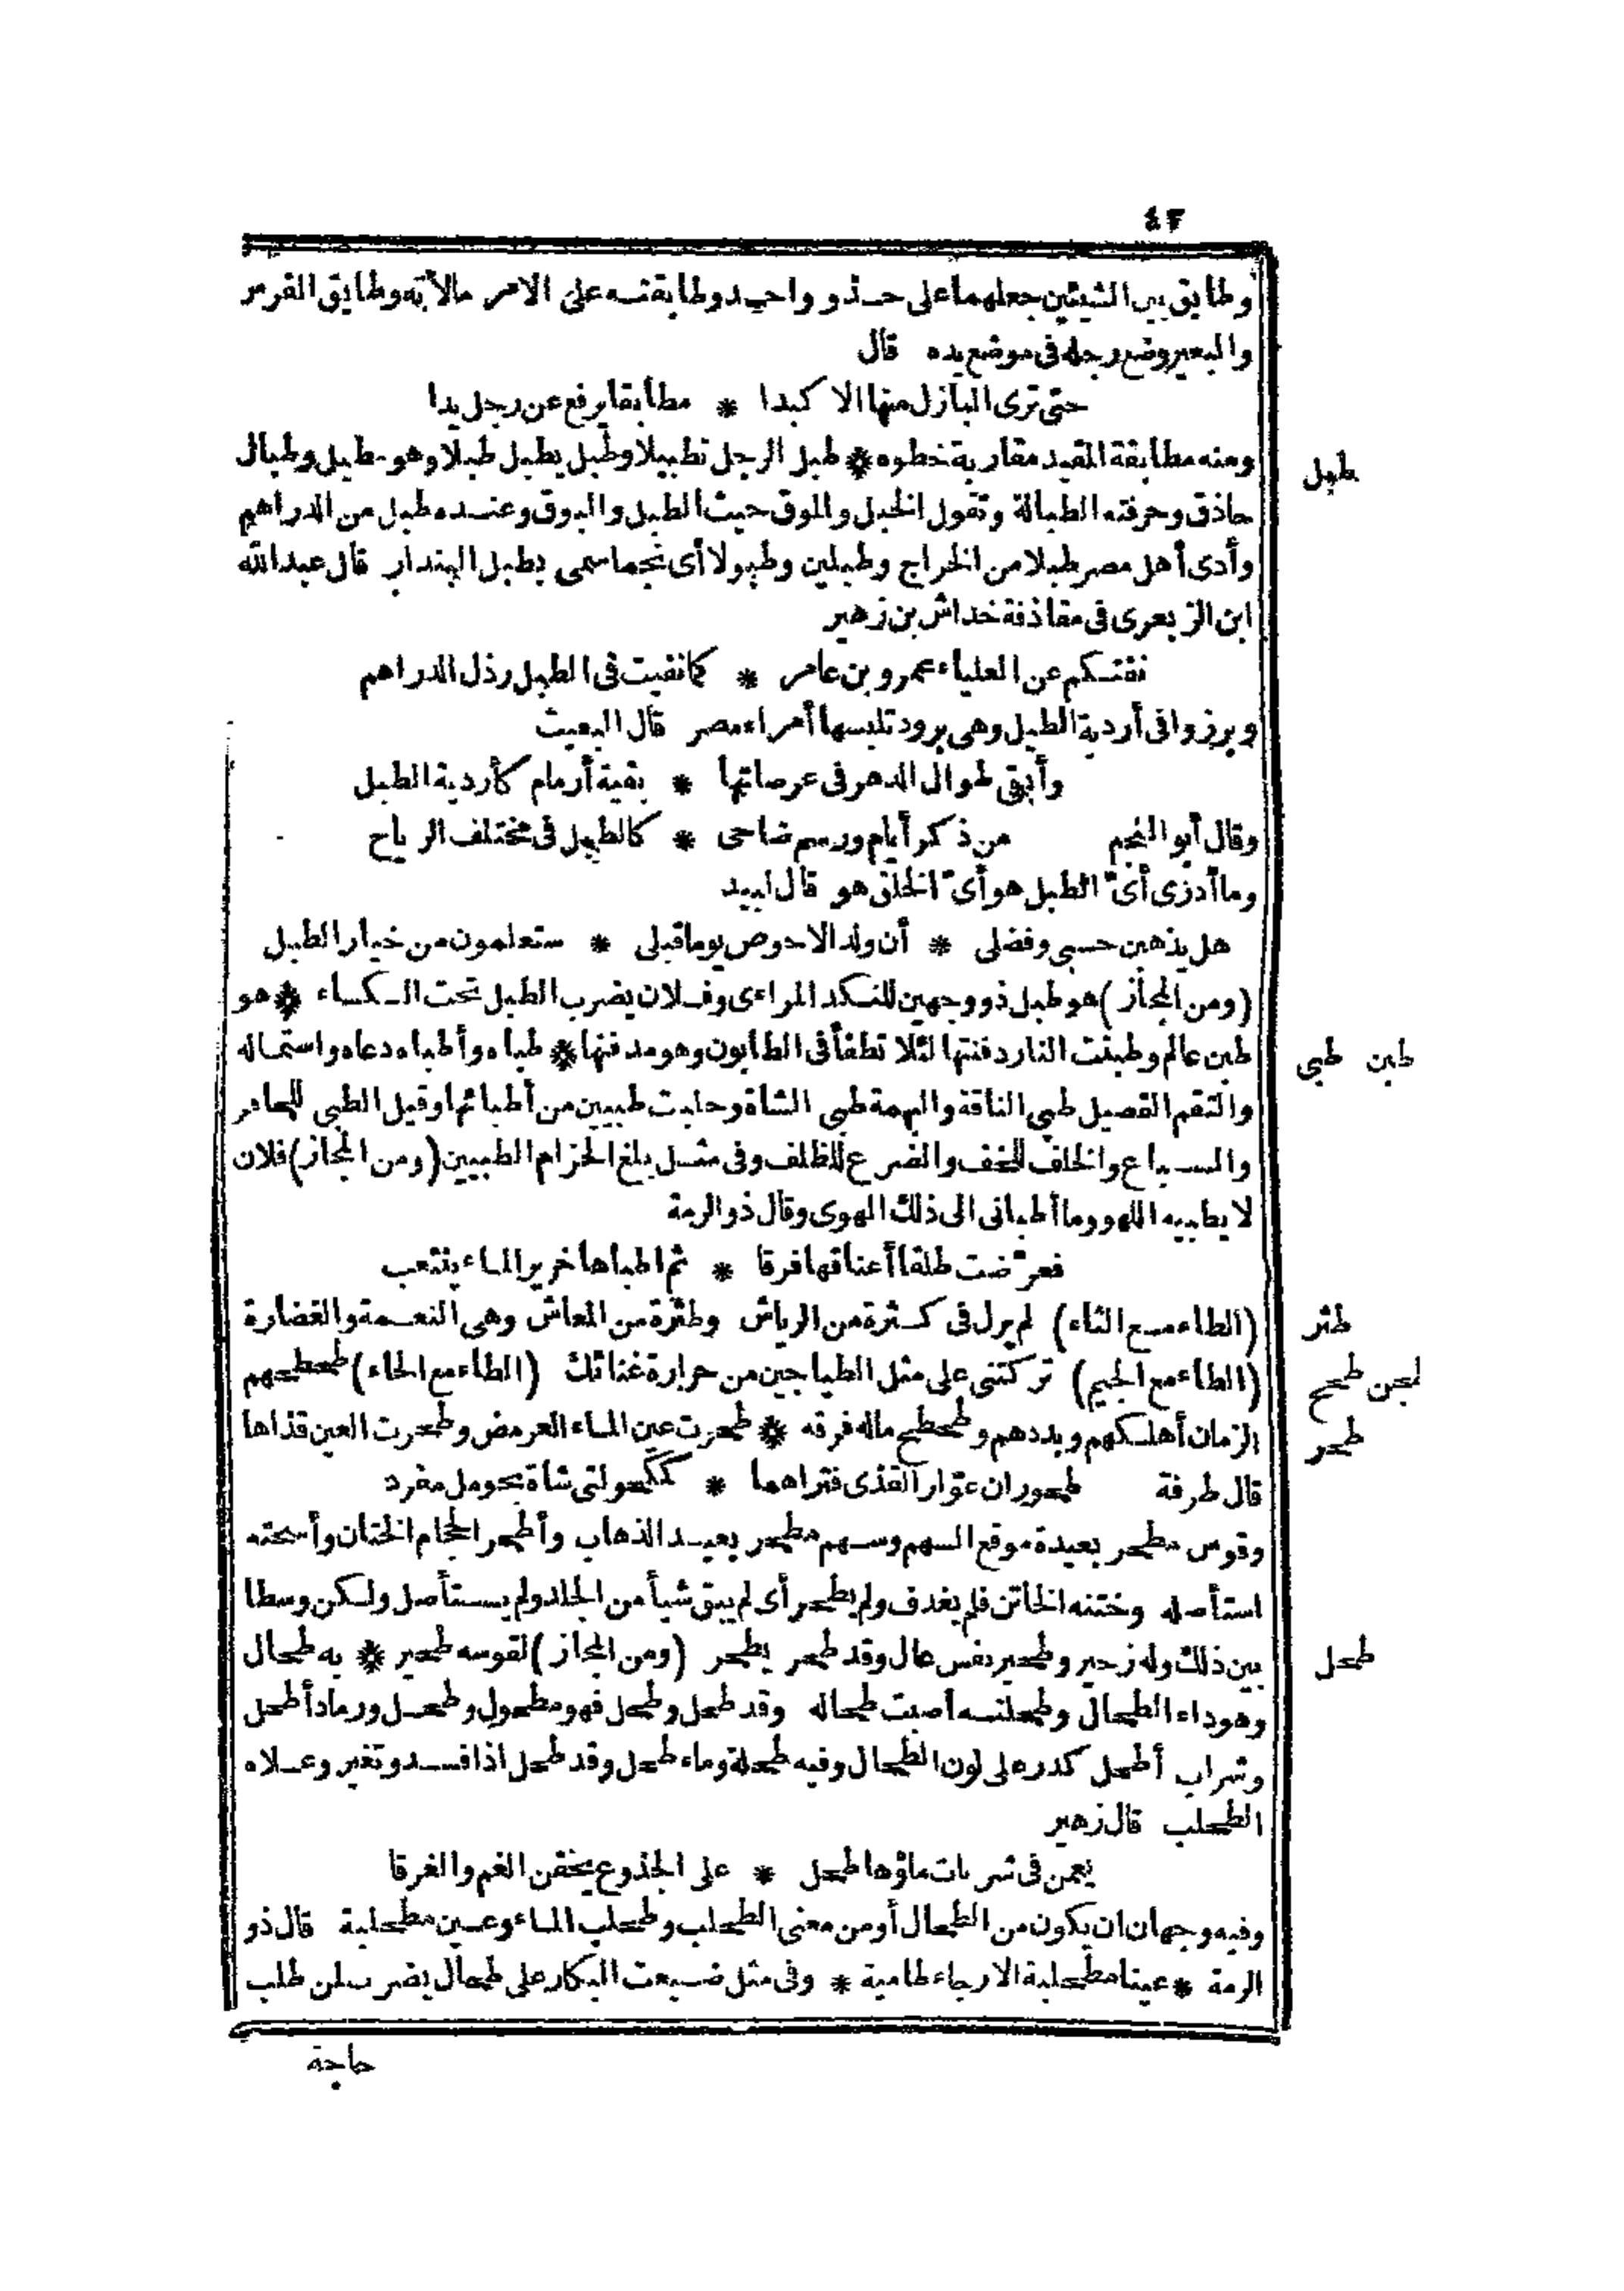 ٤٢
وطابق بين الشيئين جعلهما على حذو واحد وطابقته على الامر مالأته وطابق الفرس
والبعير وضع رجله فى موضع يده قال
حتى ترى البازل منها الاكبدا * مطابقا يرفع عن رجل يدا
ومنه مطابقة المقيد مقاربة خطوه * طبل الرجل تطبيلا وطبل يطبل طبلا وهو مطبل وطبال
طبل
حاذق وحرفته الطبالة وتقول الخيل والموق حيث الطبل والبوق وعنده طبل من الدراهم
وأدى أهل مصر طبلا من الخراج وطبلين وطبولا أى نجما سمى بطبل البندار قال عبد الله
ابن الزبعرى فى مقاذفة خداش بن زهير
نفتكم عن العلياء عمرو بن عامر * كما نفيت فى الطبل رذل الدراهم
وبرزوا فى أردية الطبل وهى برود تلبسها أمراء مصر قال البعيث
وأبقى طوال الدهر فى عرصاتها * بقية أرمام كأردية الطبل
وقال أبو النجم من ذكر أيام ورسم ضاحى * كالطبل فى مختلف الرياح
وما أدرى أىّ الطبل هو أىّ الخلق هو قال لبيد
هل يذهبن حسبى وفضلى * أن ولد الاحوص يوما قبلى * ستعلمون من خيار الطبل
(ومن المجاز) هو طبل ذو وجهين للنكد المراءى وفلان يضرب الطبل تحت الكساء * هو
طبن عالم وطبنت النار دفنتها لئلا تطفأ فى الطابون وهو مدفنها * طباه وأطباه دعاه واستماله
طبن طبى
والتقم الفصيل طبى الناقة والبهمة طبى الشاة وحلبت طبيين من أطبائها وقيل الطبى للحافر
والسباع والخلف للخف والضرع للظلف وفى مثل بلغ الحزام الطبيين (ومن المجاز) فلان
لا يطبيه اللهو وما أطبانى الى ذلك الهوى وقال ذو الرمة
فعرّضت طلقا أعناقها فرقا * ثم اطباها خرير الماء ينثعب
(الطاء مع الثاء) لم يزل فى كثرة من الرياش وطثرة من المعاش وهى النعمة والغضارة
طثر
(الطاء مع الجيم) تركتنى على مثل الطياجين من حرارة غنائك (الطاء مع الحاء) طحطحهم
طجن طحح
الزمان أهلكهم وبددهم وطحطح ماله فرقه * طحرت عين الماء العرمض وطحرت العين قذاها
طحر
قال طرفة طحوران عوّار القذى فتراهما * كمكحولتى شاة بحومل مفرد
وقوس مطحر بعيدة موقع السهم وسهم مطحر بعيد الذهاب وأطحر الحجام الختان وأسحته
استأصله وختنه الخاتن فلم يغدف ولم يطحر أى لم يبق شيأ من الجلد ولم يستأصل ولكن وسطا
بين ذلك وله زحير وطحير نفس عال وقد طحر يطحر (ومن المجاز) لقوسه طحير * به طحال
طحل
وهو داء الطحال وطحلته أصبت طحاله وقد طحل وطحل فهو مطحول وطحل ورماد أطحل
وشراب أطحل كدر على لون الطحال وفيه طحلة وماء طحل وقد طحل اذا فسد وتغير وعلاه
الطحلب قال زهير
يعمن فى شربات ماؤها طحل * على الجذوع يخفن الغم والغرقا
وفيه وجهان ان يكون من الطحال أو من معنى الطحلب وطحلب الماء وعين مطحلبة قال ذو
الرمة * عينا مطحلبة الارجاء طامية * وفى مثل ضيعت البكار على طحال يضرب لمن طلب
حاجة